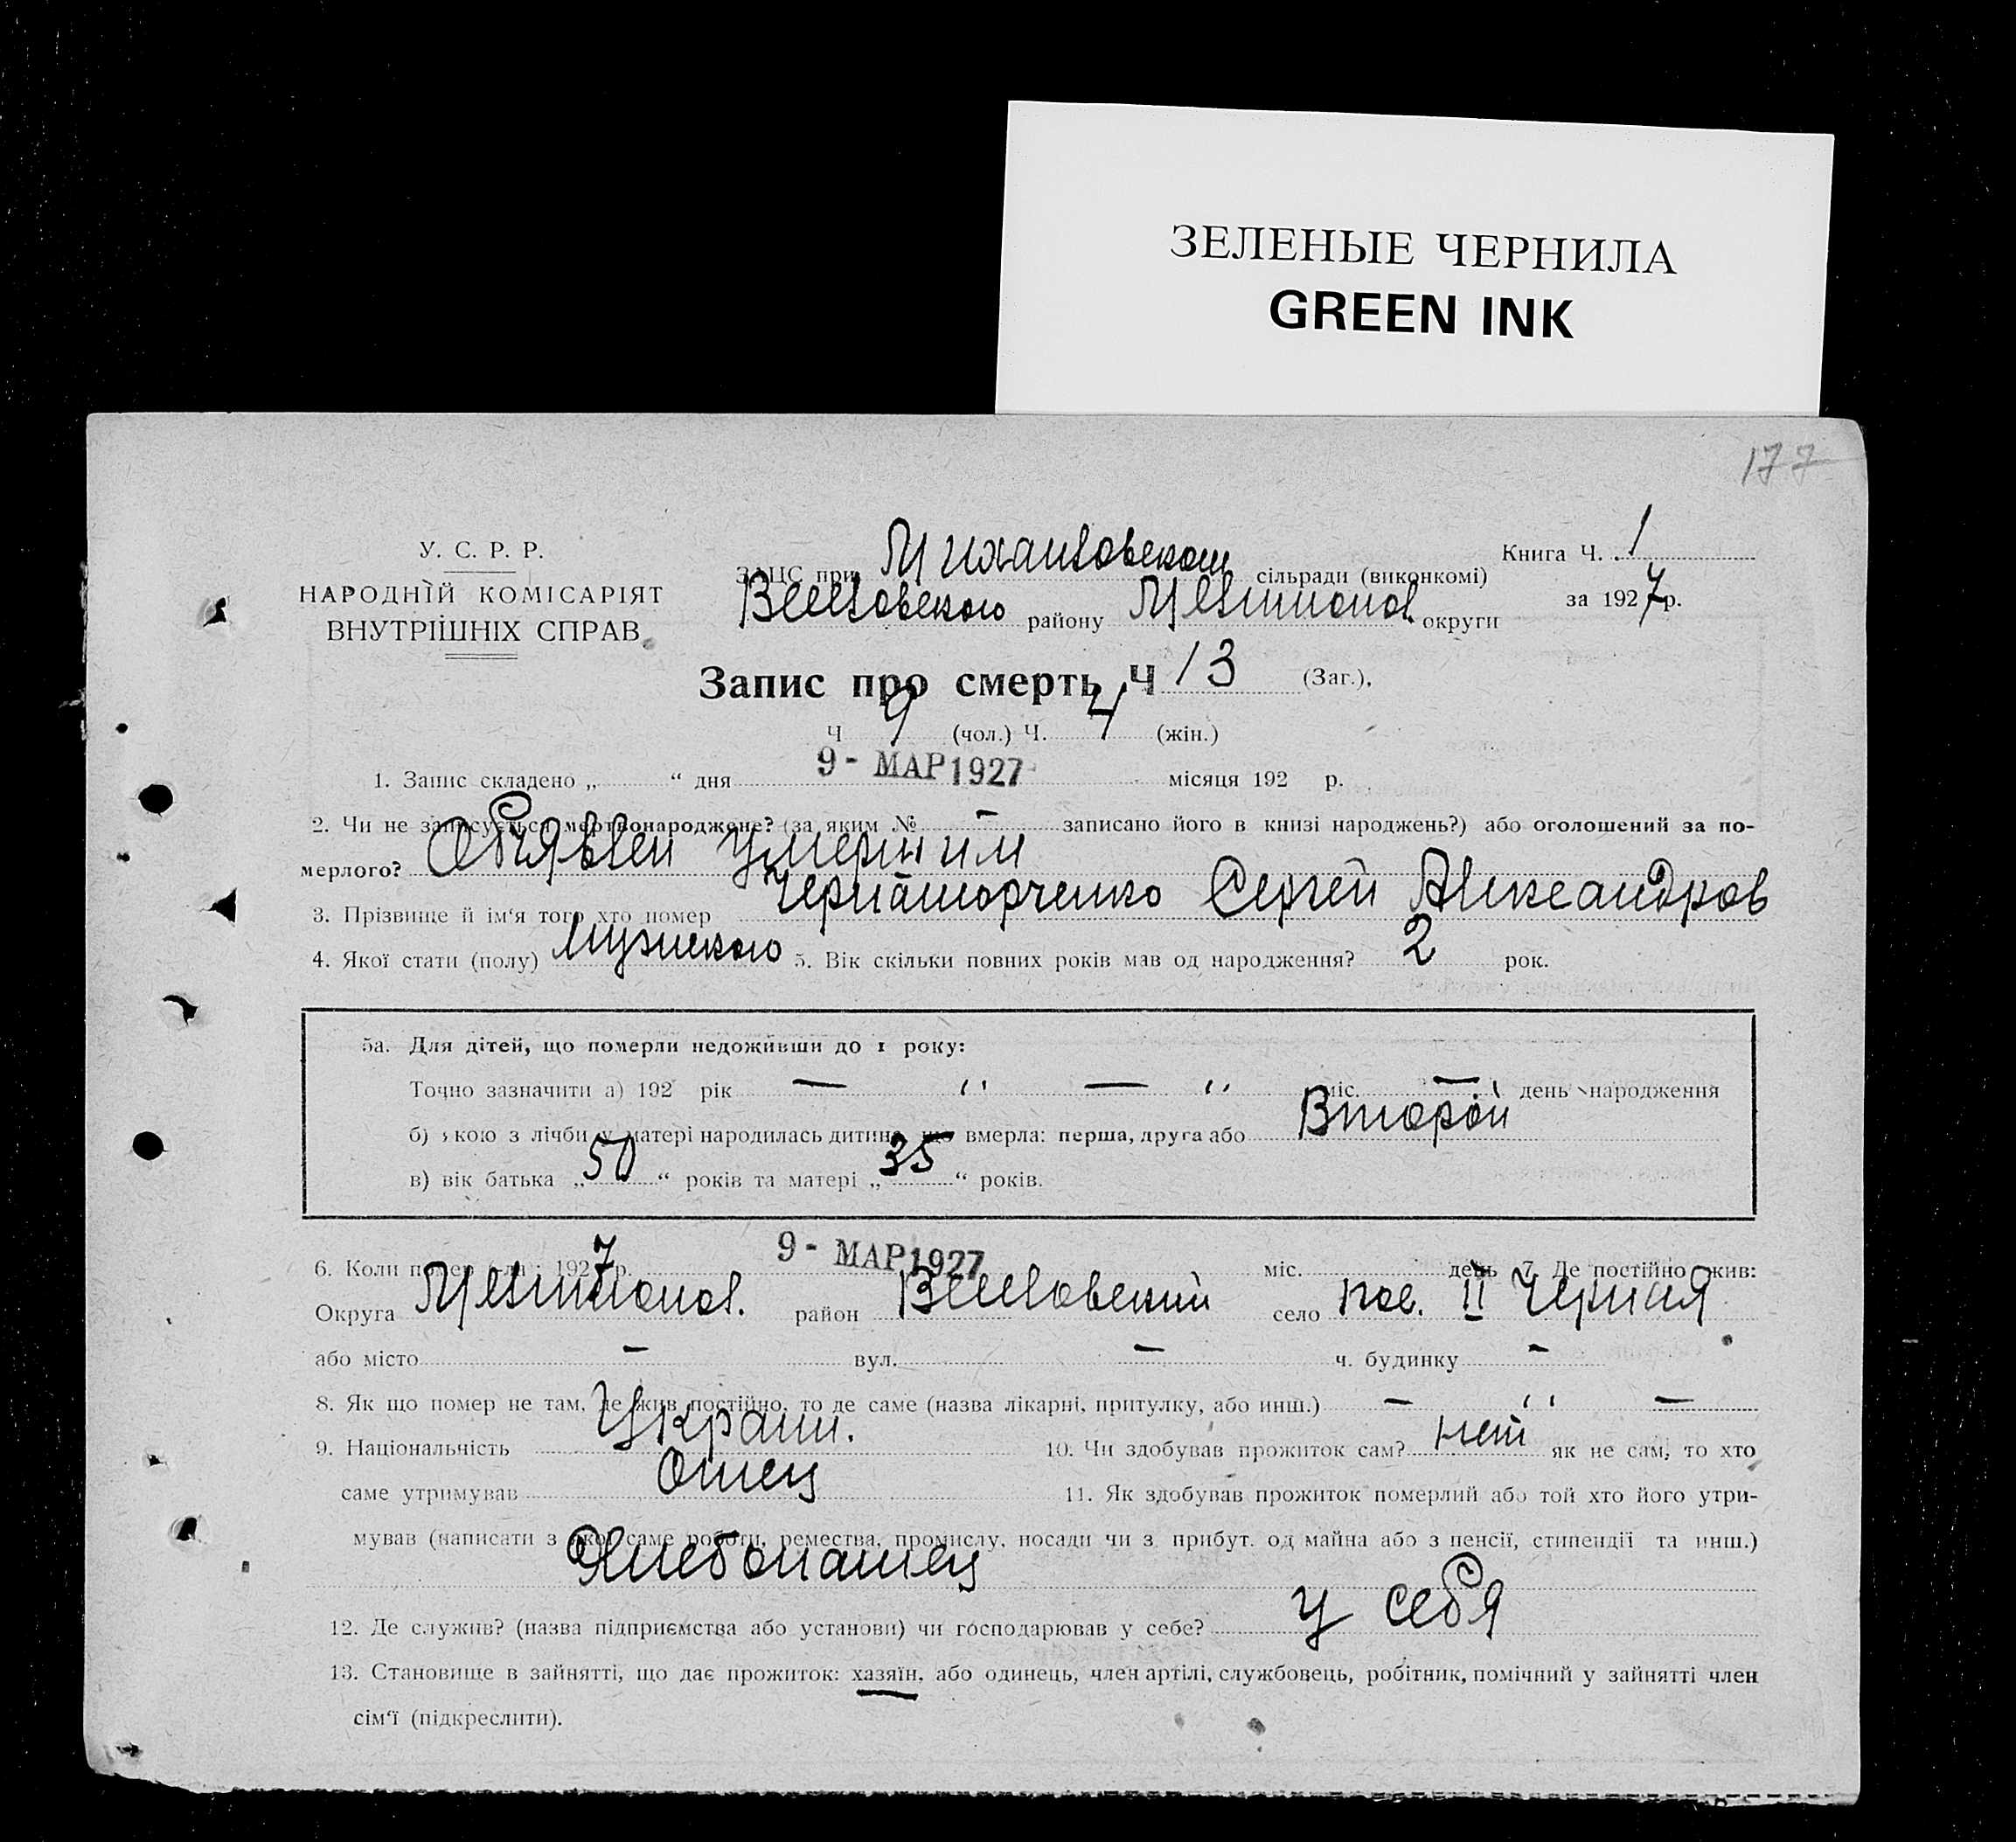 ЗЕЛЕНЫЕ ЧЕРНИЛА
GREEN INK
177
У. С. Р. Р.
НАРОДНІЙ КОМІСАРІЯТ
ВНУТРІШНІХ СПРАВ
ЗАЦС при Михайловском сільради (виконкомі)
Веселовского району Мелитопол. округи
Книга Ч. 1
за 1927 р.
Запис про смерть Ч 13 (Заг.),
Ч 9 (чол.) Ч. 4 (жін.)
1. Запис складено „ “ дня 9 - МАР 1927 місяця 192 р.
2. Чи не записується мертвонароджене? (за яким № – записано його в книзі народжень?) або оголошений за по-
мерлого? Объявлен умершим
3. Прізвище й ім'я того хто помер Сергей Александров
4. Якої стати (полу) Мужского 5. Вік скільки повних років мав од народження? 2 рок.
5а. Для дітей, що померли недоживши до 1 року:
Точно зазначити а) 192 рік — „ — „ міс. — день народження
б) якою з лічби у матері народилась дитина, що вмерла: перша, друга або Второй
в) вік батька „ 50 “ років та матері „ 35 “ років.
6. Коли помер 1927 р. 9 - МАР 1927 міс. день 7. Де постійно жив:
Округа Мелитопол. район Веселовский село пос. II Черная
або місто – вул. – ч. будинку –
8. Як що помер не там, де жив постійно, то де саме (назва лікарні, притулку, або инш.) — „ —
9. Національність Украин. 10. Чи здобував прожиток сам? нет як не сам, то хто
саме утримував Отец 11. Як здобував прожиток померлий або той хто його утри-
мував (написати з якої саме роботи, ремества, промислу, посади чи з прибут. од майна або з пенсії, стипендії та инш.)
Хлебопашец
12. Де служив? (назва підприємства або установи) чи господарював у себе? у себя
13. Становище в зайнятті, що дає прожиток: хазяїн, або одинець, член артілі, службовець, робітник, помічний у зайнятті член
сім'ї (підкреслити).